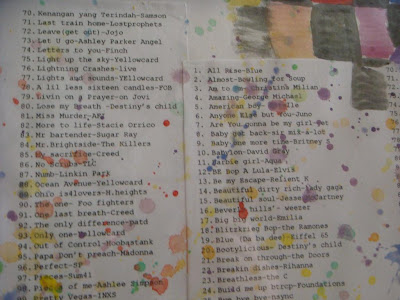 70. Kenangan yang Terindah-Samson
71. Last train home-Lostprophets
72. Leave(get out)-Jojo
73. Let U go-Ashley Parker Angel
74. Letters to you-Finch
75. Light up the sky-Yellowcard
76. Lightning Crashes-live
77. Lights and sounds-YEllowcard
78. A lil less sixteen candles-FOB
79. Livin on a Prayer-on Jovi
80. Lose my breath -Destiny's child
81. Miss Murder-AFI
82. More to life-Stacie Orrico
83. Mr bartender-Sugar Ray
84. Mr.Brightside-The Killers
85. My sacrifice-Creed
86. No Scrubs-TLC
87. Numb-Linkin Park
88. Ocean Avenue-Yellowcard
89. Ohio is4lovers-H.heights
90. The one- Foo fighters
91. One last breath-Creed
92. The only difference-patd
93. Only one-Yellowcard
94. Out of Control-hoobastank
95. Papa Don't preach-Madonna
96. Perfect-SP
97. Pieces-Sum41
Pieces of me-Aahlee Simpson
Pretty Vegas-INXS
1. All Rise-Blue
2. Almost-Bowling for Soup
3. Am to me-Christina Milian
4. Amazing-George Michael
5. American boy-
6. Anyone Else but You-Juno
7. Are You gonna be my girl-Jet
8. Baby got back-sir mix-a-lot
9. Baby one more time-Britney
10. Babylon-David Gray
11. Barbie girl-Aqua
12. BE Bop A Lula-Elvis
13. Be my Escape-Relient K
14. Beautiful dirty rich-lady gaga
15. Beautiful soul-Jesse McCartney
16. Beverly hills'- weezer
17. Big big world-Emilia
18. Blitzkrieg Bop-the Ramones
19. Blue (Da ba dee)-Eiffel 65
20. Bootylicious- Destiny's child
21. Break on through-the Doors
22. Breakin dishes-Rihanna
23. Breathless-the C
24. Build me up btrcp-Foundations
Bye bye bye-nsync
70.